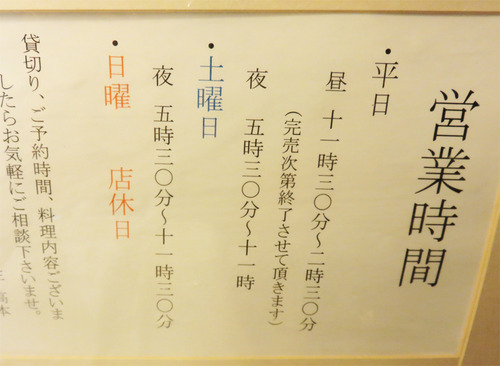 営業時間
・平日
昼 十一時三〇分〜二時三〇分
(完売次第終了させて頂きます)
夜 五時三〇分〜十一時
・土曜日
夜 五時三〇分〜十一時三〇分
・日曜 店休日
貸切り、ご予約時間、料理内容ございま
したらお気軽にご相談下さいませ。